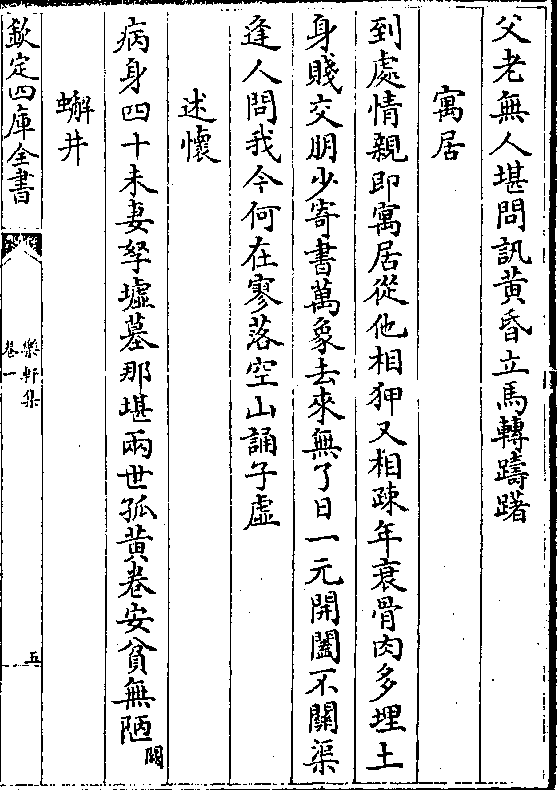 父老無人堪問訊黄昏立馬轉躊躇
寓居
到處情親即寓居從他相狎又相疎年衰骨肉多埋土
身賤交朋少寄書萬象去來無了日一元開闔不關渠
逢人問我今何在寥落空山誦子虛
述懷
病身四十未妻孥墟墓那堪兩世孤黄卷安貧無陋闕
蠏井
欽定四庫全書
樂軒集
卷一
五